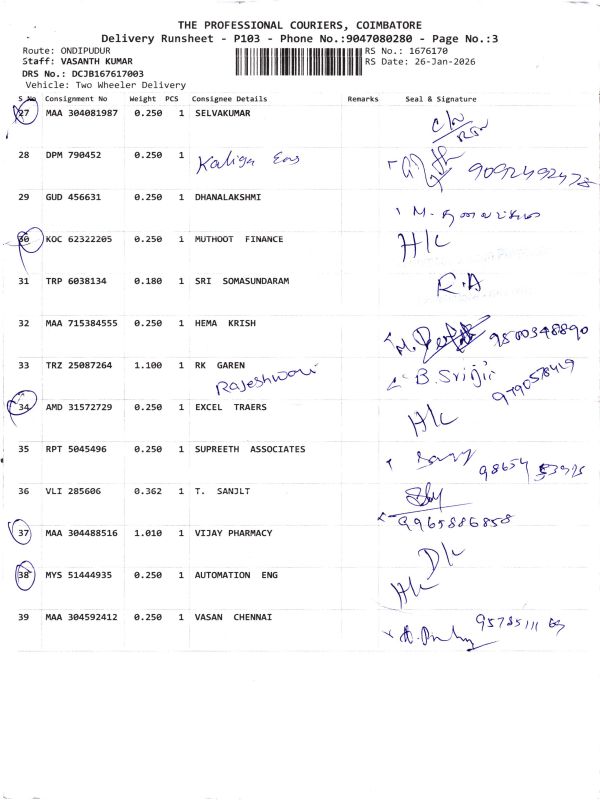 THE PROFESSIONAL COURIERS, COIMBATORE
Delivery Runsheet - P103 - Phone No.:9047080280 - Page No.:3
Route: ONDIPUDUR RS No.: 1676170
Staff: VASANTH KUMAR RS Date: 26-Jan-2026
DRS No.: DCJB167617003
Vehicle: Two Wheeler Delivery
S.No Consignment No Weight PCS Consignee Details Remarks Seal & Signature
27 MAA 304081987 0.250 1 SELVAKUMAR
28 DPM 790452 0.250 1 Kaliga Eng 9092492478
29 GUD 456631 0.250 1 DHANALAKSHMI
30 KOC 62322205 0.250 1 MUTHOOT FINANCE H/C
31 TRP 6038134 0.180 1 SRI SOMASUNDARAM R.A
32 MAA 715384555 0.250 1 HEMA KRISH 9500348890
33 TRZ 25087264 1.100 1 RK GAREN B. Srijir
Rajeshwari
34 AMD 31572729 0.250 1 EXCEL TRAERS H/C
35 RPT 5045496 0.250 1 SUPREETH ASSOCIATES
36 VLI 285606 0.362 1 T. SANJLT
9965886858
37 MAA 304488516 1.010 1 VIJAY PHARMACY D/C
38 MYS 51444935 0.250 1 AUTOMATION ENG H/C
39 MAA 304592412 0.250 1 VASAN CHENNAI